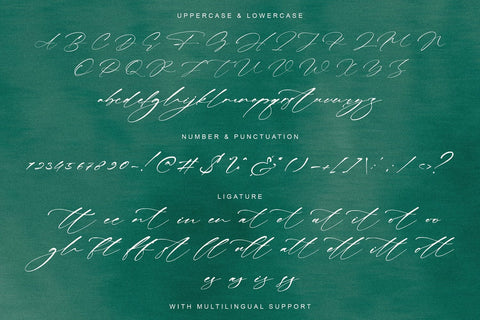 UPPERCASE & LOWERCASE
A B C D E F G H I J K L M N
O P Q R S T U V W X Y Z
abcdefghijklmnopqrstuvwxyz
NUMBER & PUNCTUATION
1234567890-!@#$%^&*()-+[]\;:,./<>?
LIGATURE
tt ee in en at et it ot oo
ft ff ll att ell itt ott
es as is ss
WITH MULTILINGUAL SUPPORT